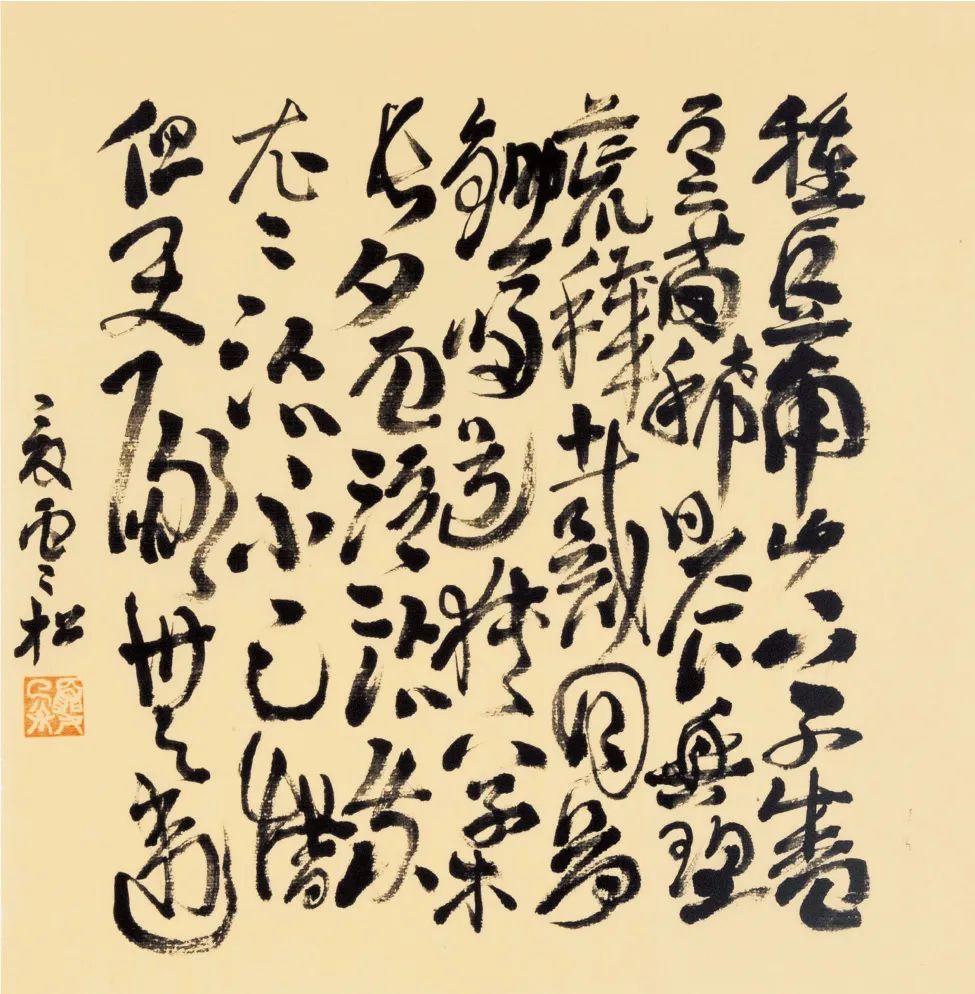 種豆南山下草盛
豆苗稀晨興理
荒穢帶月荷
鋤歸道狹草木
長夕露沾我衣
衣沾不足惜
但使願無違
松